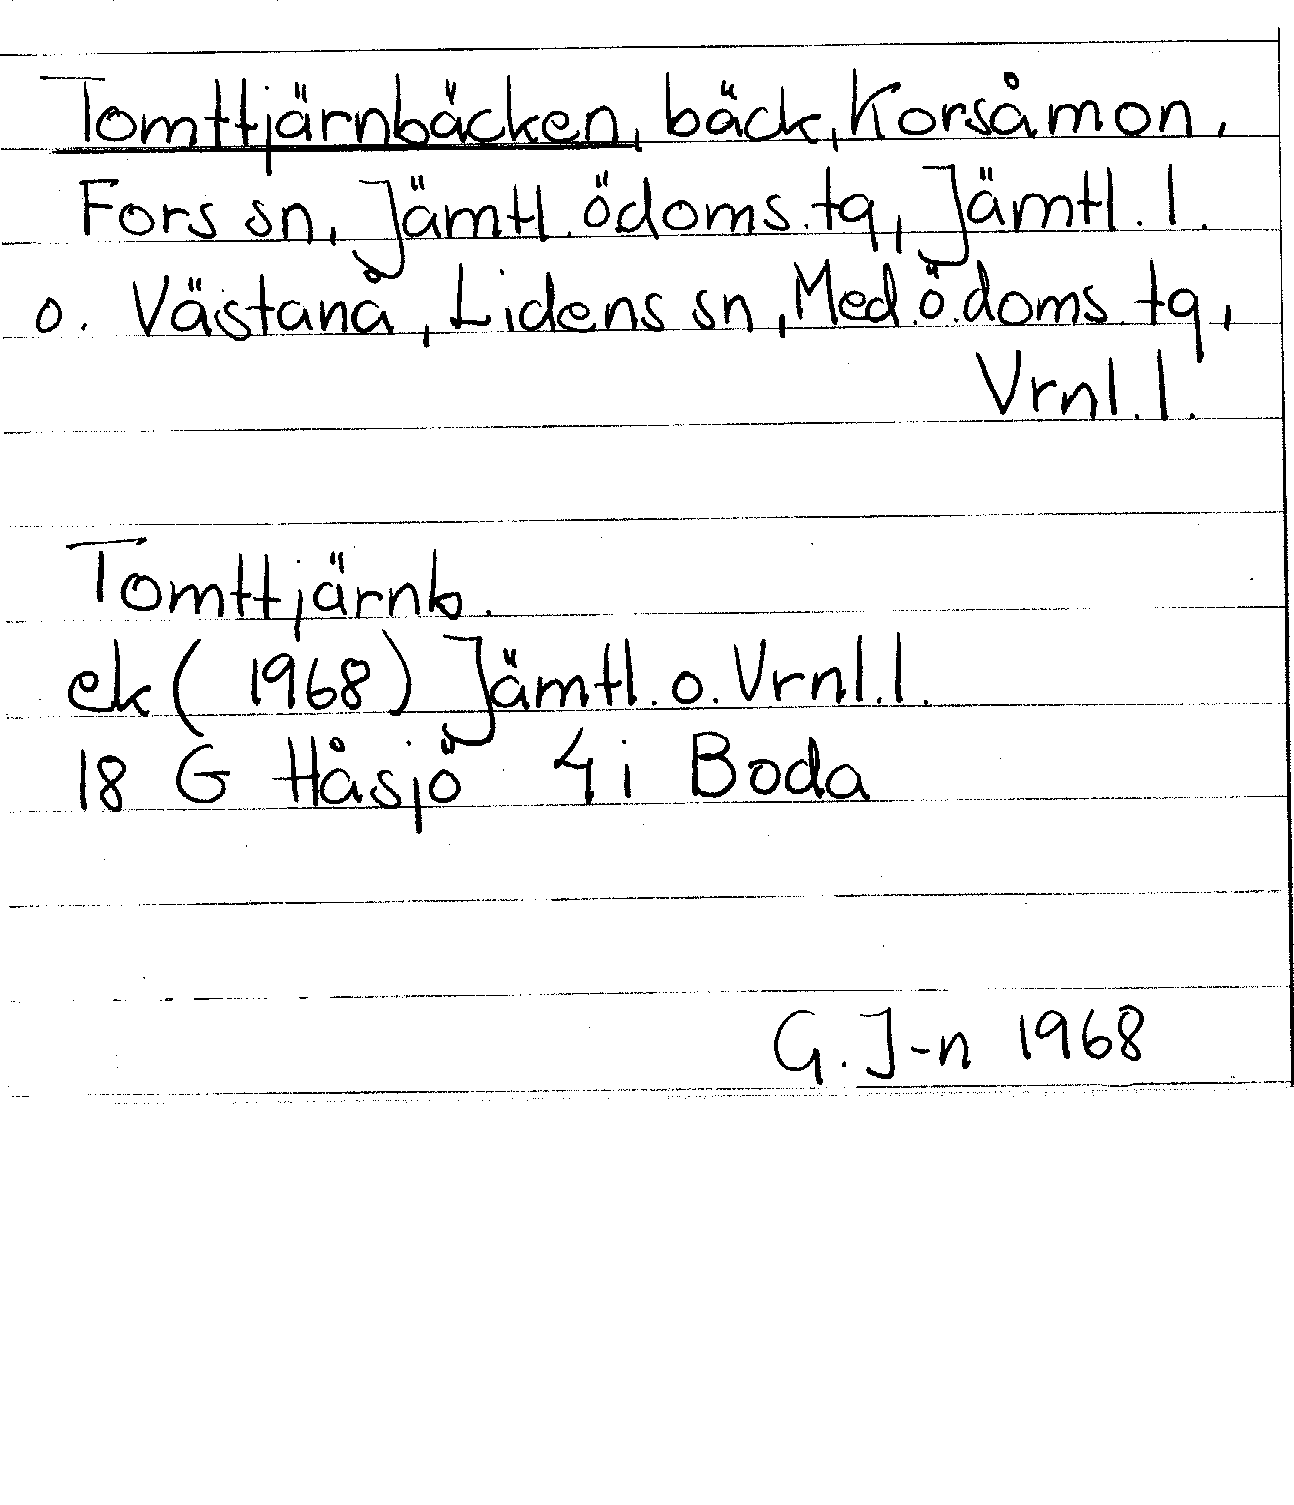 Tomttjärnbäcken, bäck, Korsåmon,
Fors sn, Jämtl. ödoms. tg, Jämtl. l.
o. Västanå, Lidens sn, Med.ö.doms. tg,
Vrnl. l.
Tomttjärnb.
ek (1968) Jämtl. o. Vrnl. l.
18 G Håsjö 4 i Boda
G. J-n 1968